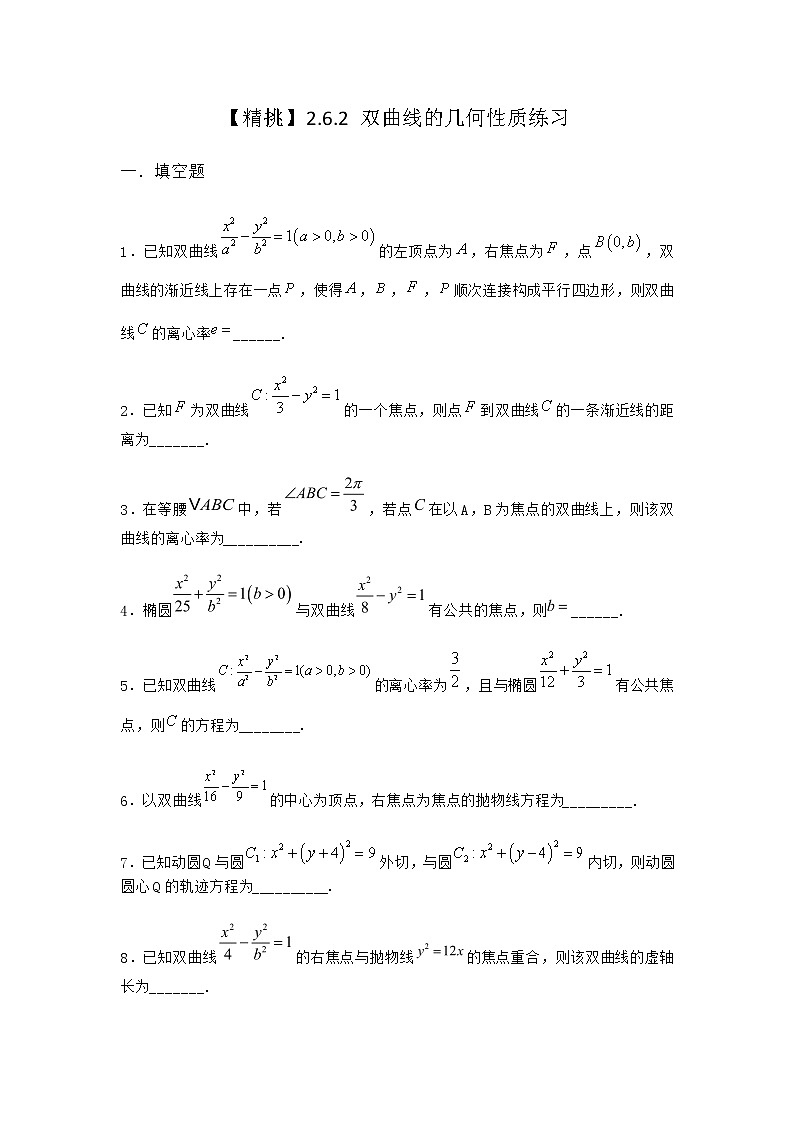 【精挑】2.6.2 双曲线的几何性质练习
一. 填空题
1.已知双曲线 x²/a² - y²/b² = 1(a>0,b>0) 的左顶点为 A,右焦点为 F,点 B(0,b),双
曲线的渐近线上存在一点 P,使得 A,B,F,P 顺次连接构成平行四边形,则双曲
线 C 的离心率 e = ______.
2.已知 F 为双曲线 C: x²/3 - y² = 1 的一个焦点,则点 F 到双曲线 C 的一条渐近线的距
离为_______.
3.在等腰 VABC 中,若 ∠ABC = 2π/3,若点 C 在以 A,B 为焦点的双曲线上,则该双
曲线的离心率为__________.
4.椭圆 x²/25 + y²/b² = 1(b>0) 与双曲线 x²/8 - y² = 1 有公共的焦点,则 b = ______.
5.已知双曲线 C: x²/a² - y²/b² = 1(a>0,b>0) 的离心率为 3/2,且与椭圆 x²/12 + y²/3 = 1 有公共焦
点,则 C 的方程为________.
6.以双曲线 x²/16 - y²/9 = 1 的中心为顶点,右焦点为焦点的抛物线方程为_________.
7.已知动圆 Q 与圆 C₁: x² + (y+4)² = 9 外切,与圆 C₂: x² + (y-4)² = 9 内切,则动圆
圆心 Q 的轨迹方程为__________.
8.已知双曲线 x²/4 - y²/b² = 1 的右焦点与抛物线 y² = 12x 的焦点重合,则该双曲线的虚轴
长为_______.